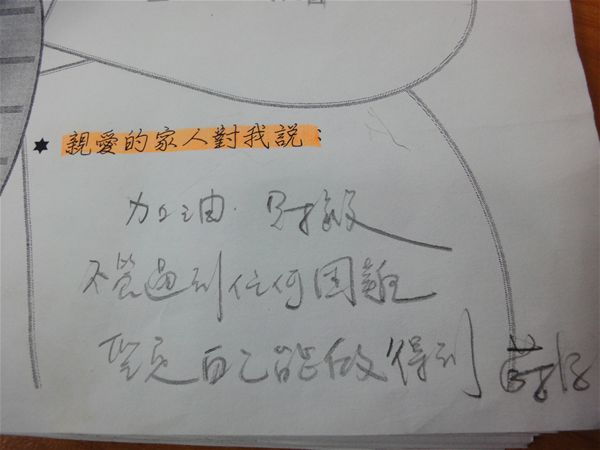 ★親愛的家人對我說:
加油.
不管遇到任何困難
自己能做得到